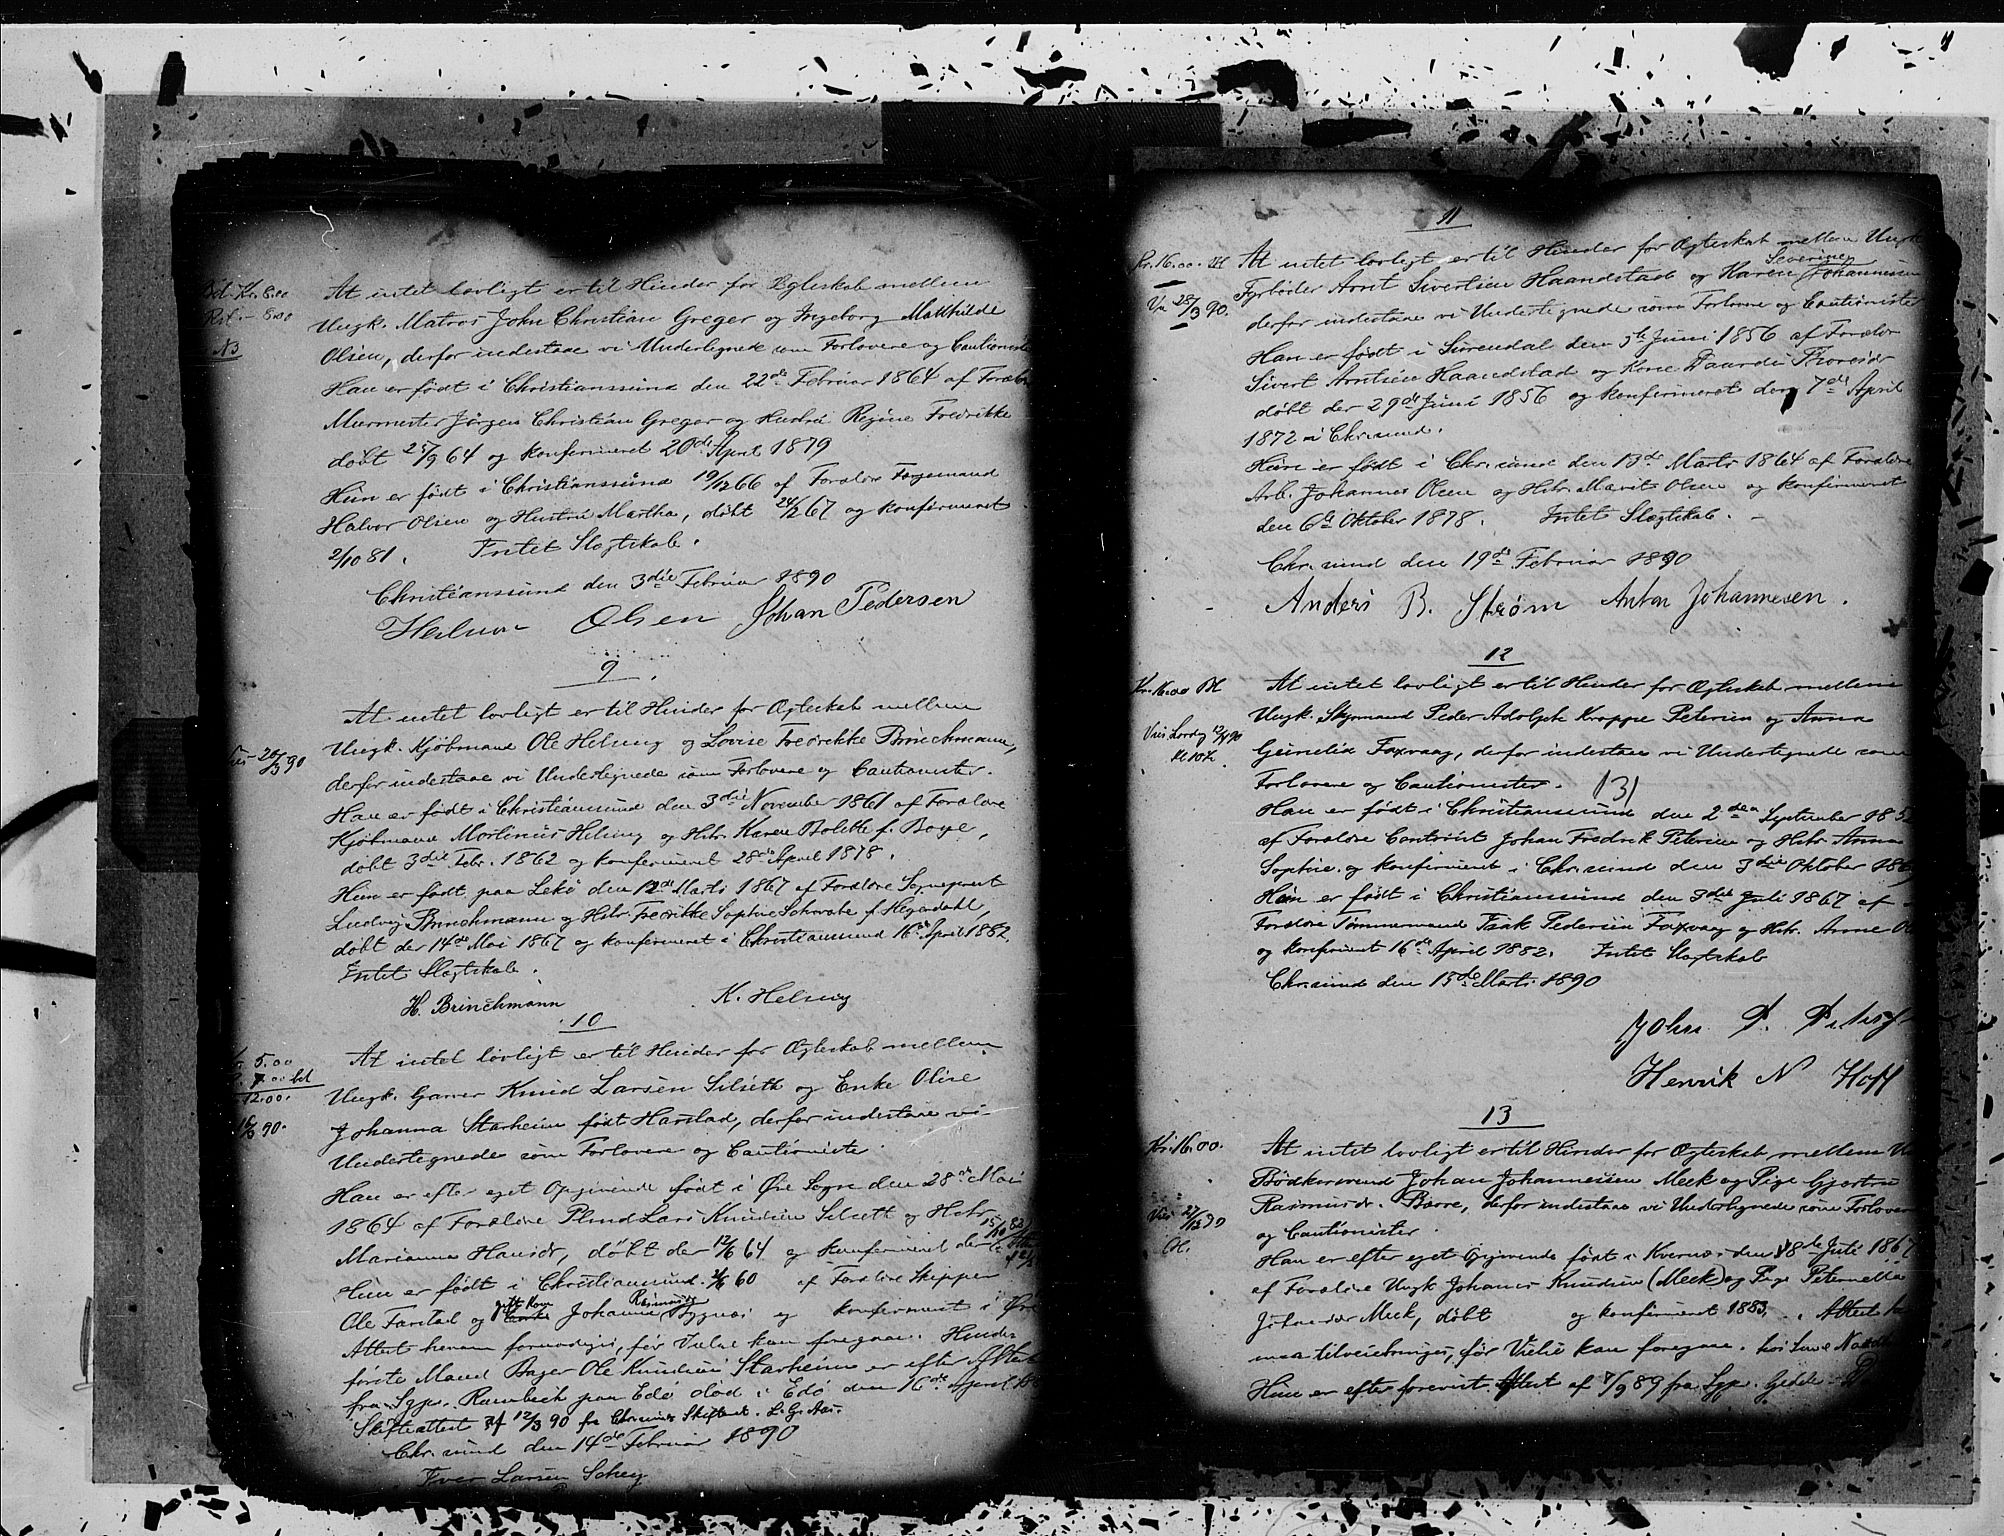 Bet. Kr. 8.00
Rst. - 8.00
At intet lovligt er til Hinder for Egteskab mellem
Ungk. Matros John Christian Greger og Ingeborg Mathilde
Olsen, derfor indestaae vi Undertegnede som Forlovere og Cautionister
Han er født i Christianssund den 22de Februar 1864 af Forældre
Murmester Jørgen Christian Greger og Hustru Regine Fredrikke
døbt 25/9 64 og konfirmeret 20de April 1879
Hun er født i Christianssund 19/12 66 af Forældre
Halvor Olsen og Hustru Martha, døbt 24/2 67 og konfirmeret
2/10 81. Intet Slægtskab.
Christianssund den 3die Februar 1890
Olsen Johan Pedersen
9
20/3 90
At intet lovligt er til Hinder for Ægteskab mellem
Ungk. Kjøbmand Ole Helsing og Lovise Fredrikke Brinchmann,
derfor indestaae vi Undertegnede som Forlovere og Cautionister.
Han er født i Christianssund den 3die November 1861 af Forældre
Kjøbmand Mortinus Helsing og Hstr. Karen Bolette f. Boye,
døbt 3die Febr. 1862 og konfirmeret 28de April 1878.
Hun er født paa Lekø den 12de Marts 1867 af Forældre Sogneprest
Ludvig Brinchmann og Hstr. Fredrikke Sophie Schwabe f. Hegerdahl,
døbt den 14de Mai 1867 og konfirmeret i Christianssund 16de April 1882
Intet Slægtskab.
H. Brinchmann K. Helsing
10
5.00
7.00 bet
12.00.
90.
At intet lovligt er til Hinder for Ægteskab mellem
Ungk. Garver Knud Larsen Silseth og Enke Oline
Johanna Starheim født Harstad, derfor indestaae vi
Undertegnede som Forlovere og Cautionister
Han er efter eget Opgivende født i Øre Sogn den 28de Mai
1864 af Forældre Lars Knudsen Silseth og Hstr.
Marianne Hansdr, døbt den 12/6 64 og konfirmeret den
Hun er født i Christianssund 60 af Forældre Skipper
Ole Farstad og Johanne Rasmusdr og konfirmeret i Øre
Attest herom fornødiges, før Vielse kan foregaae. Hendes
første Mand Bager Ole Knudsen Starheim er efter Attest
fra Sgpr. Rumbech paa Edø død i Edø den 16de April
Skifteattest af 12/3 90 fra Chr.sunds Skifteret.
Chr.sund den 14de Februar 1890
Iver Larsen
11
Kr. 16.00.
28/3 90.
At intet lovligt er til Hinder for Ægteskab mellem Ungk.
Fyrbøder Arnt Sivertsen Haandstad og Karen Severine Johannessen
derfor indestaae vi Undertegnede som Forlovere og Cautionister
Han er født i Surendal den 5te Juni 1856 af Forældre
Sivert Arntsen Haandstad og Kone
døbt den 29de Juni 1856 og konfirmeret den 7de April
1872 i Chr.sund.
Hun er født i Chr.sund den 13de Marts 1864 af Forældre
Arb. Johannes Olsen og Hstr. Marit Olsen og konfirmeret
den 6te Oktober 1878. Intet Slægtskab.
Chr.sund den 19de Februar 1890
Anders B. Strøm Anton Johannesen.
12
Kr. 16.00
At intet lovligt er til Hinder for Ægteskab mellem
Ungk. Styrmand Peder Adolph Kroppe Petersen og Anna
Foxvaag, derfor indestaae vi Undertegnede som
Forlovere og Cautionister.
131
Han er født i Christianssund den 2den September
af Forældre Johan Fredrik Petersen og Hstr Anna
Sophie og konfirmeret i Chr.sund den 3die Oktober
Hun er født i Christianssund den 3die Juli 1867 af
Forældre Tømmermand Isak Pedersen Foxvaag og Hstr. Anne
og konfirmeret 16de April 1882. Intet Slægtskab
Chr.sund den 15de Marts 1890
John P.
Henrik N Hoff
13
Kr. 16.00.
At intet lovligt er til Hinder for Ægteskab mellem
Bødkersvend Johan Johannessen Meek og Pige
Rasmusdr. derfor indestaae vi Undertegnede som Forlovere
og Cautionister.
Han er efter eget Opgivende født i Kvernæs den 18de Juli
af Forældre Ungk Johannes Knudsen (Meek) og Pige Peternella
Meek, døbt og konfirmeret 1883. Attest
maa tilveiebringes, før Vielse kan foregaae.
Hun er efter forevist Attest af 7/9 89 fra Sgpr.